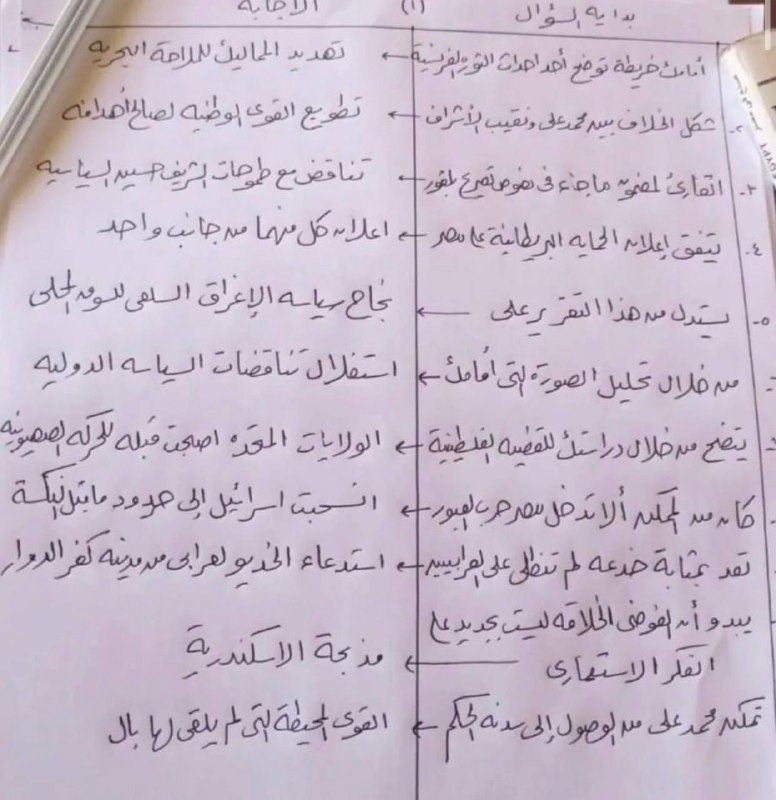 بداية السؤال (١) الاجابة
أمامك خريطة توضح أحد احداث الثورة الفرنسية ← تهديد المماليك للملاحة البحرية
٢- شكل الخلاف بين محمد على ونقيب الأشراف ← تطويع القوى الوطنية لصالح أهدافه
٣- القارئ لمضمون ما جاء فى نصوص تصريح بلفور ← تناقض مع طموحات الشريف حسين السياسية
٤- يتفق إعلان الحماية البريطانية على مصر ← اعلان كل منهما من جانب واحد
٥- يستدل من هذا التقرير على ← نجاح سياسة الإغراق السلعى للسوق المحلى
من خلال تحليل الصورة التى أمامك ← استغلال تناقضات السياسة الدولية
يتضح من خلال دراستك للقضية الفلسطينية ← الولايات المتحدة اصبحت قبلة للحركة الصهيونية
كان من الممكن ألا تدخل مصر حرب العبور ← انسحبت اسرائيل إلى حدود ما قبل النكسة
تعد بمثابة خدعة لم تنطلى على العرابيين ← استدعاء الخديو لعرابى من مدينة كفر الدوار
يبدو أن الفوضى الخلاقة ليست بجديد على
الفكر الاستعمارى ← مذبحة الاسكندرية
تمكن محمد على من الوصول إلى سدة الحكم ← القوى المحيطة التى لم يلقى لها بال